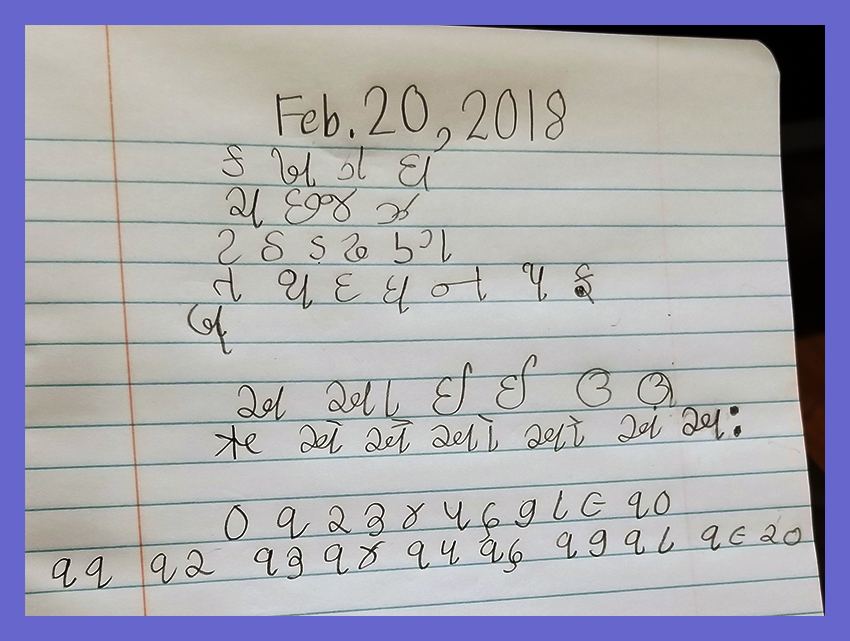 Feb. 20, 2018
ક ખ ગ ઘ
ચ છ જ ઝ
ટ ઠ ડ ઢ ણ
ત થ દ ધ ન પ ફ
બ
અ આ ઈ ઈ ઉ ઊ
ઋ એ ઐ ઓ ઓ અ અ:
૦ ૧ ૨ ૩ ૪ ૫ ૬ ૭ ૮ ૯ ૧૦
૧૧ ૧૨ ૧૩ ૧૪ ૧૫ ૧૬ ૧૭ ૧૮ ૧૯ ૨૦